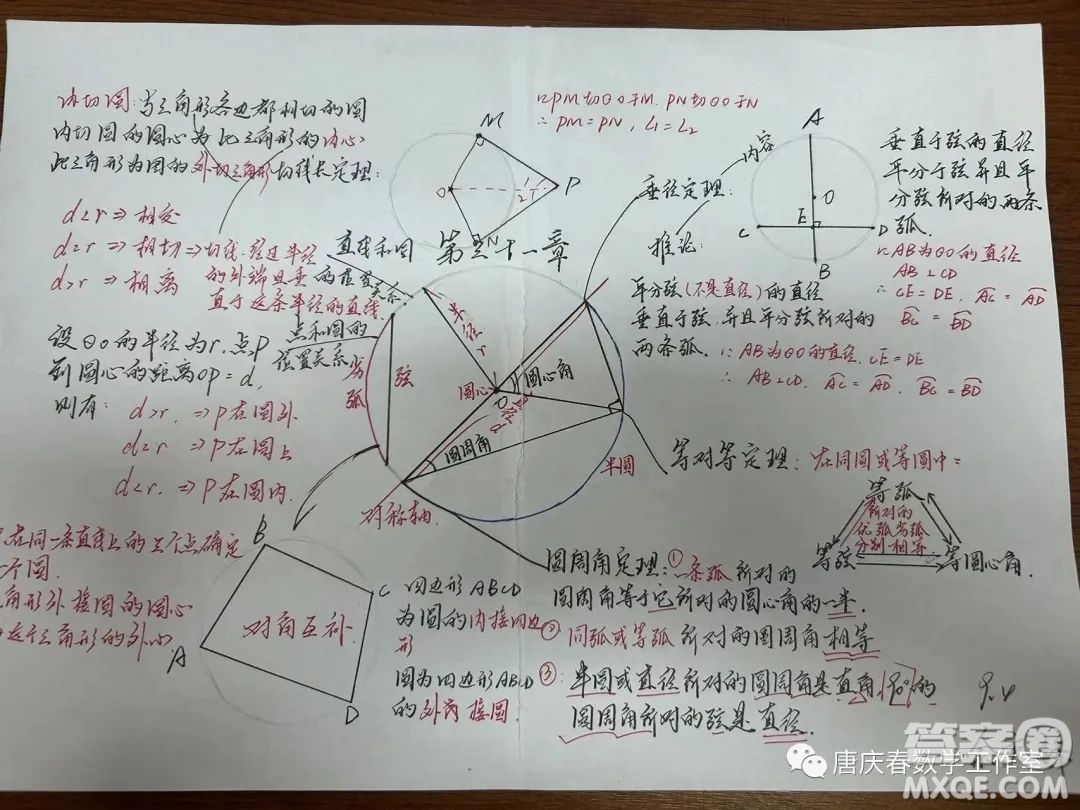 内切圆:与三角形各边都相切的圆
内切圆的圆心为此三角形的内心
此三角形为圆的外切三角形
切线长定理:
∵PM切⊙O于M. PN切⊙O于N
∴ PM=PN, ∠1=∠2
M
O
P
N
1
2
第三十一章
d<r ⇒相交
d=r ⇒相切⇒切线.经过半径
的外端且垂
直于这条半径的直线.
d>r ⇒相离
直线和圆
的位置
关系
点和圆的
位置关系
设⊙O的半径为r.点P
到圆心的距离OP=d,
则有:
d>r, ⇒P在圆外
d=r, ⇒P在圆上
d<r, ⇒P在圆内.
垂径定理:
内容
推论:
A
O
E
C
D
B
垂直于弦的直径
平分于弦并且平
分弦所对的两条
弧.
∵AB为⊙O的直径
AB⊥CD
∴CE=DE, AC=AD
BC=BD
平分弦(不是直径)的直径
垂直于弦.并且平分弦所对的
两条弧.
∵AB为⊙O的直径, CE=DE
∴ AB⊥CD, AC=AD, BC=BD
半径r
劣弧
弦
圆心
O
圆心角
直径
圆周角
半圆
对称轴
等对等定理:在同圆或等圆中:
等弧
所对的
优弧劣弧
分别相等
等弦
等圆心角.
在同一条直线上的三个点确定
个圆.
角形外接圆的圆心
这个三角形的外心
B
C
A
D
对角互补.
四边形ABCD
为圆的内接四边
形
圆为四边形ABCD
的外接圆.
圆周角定理:①一条弧所对的
圆周角等于它所对的圆心角的一半.
②同弧或等弧所对的圆周角相等
③:半圆或直径所对的圆周角是直角,90°的
圆周角所对的弦是直径.
唐庆春数学工作室
答案圈
MXQE.COM